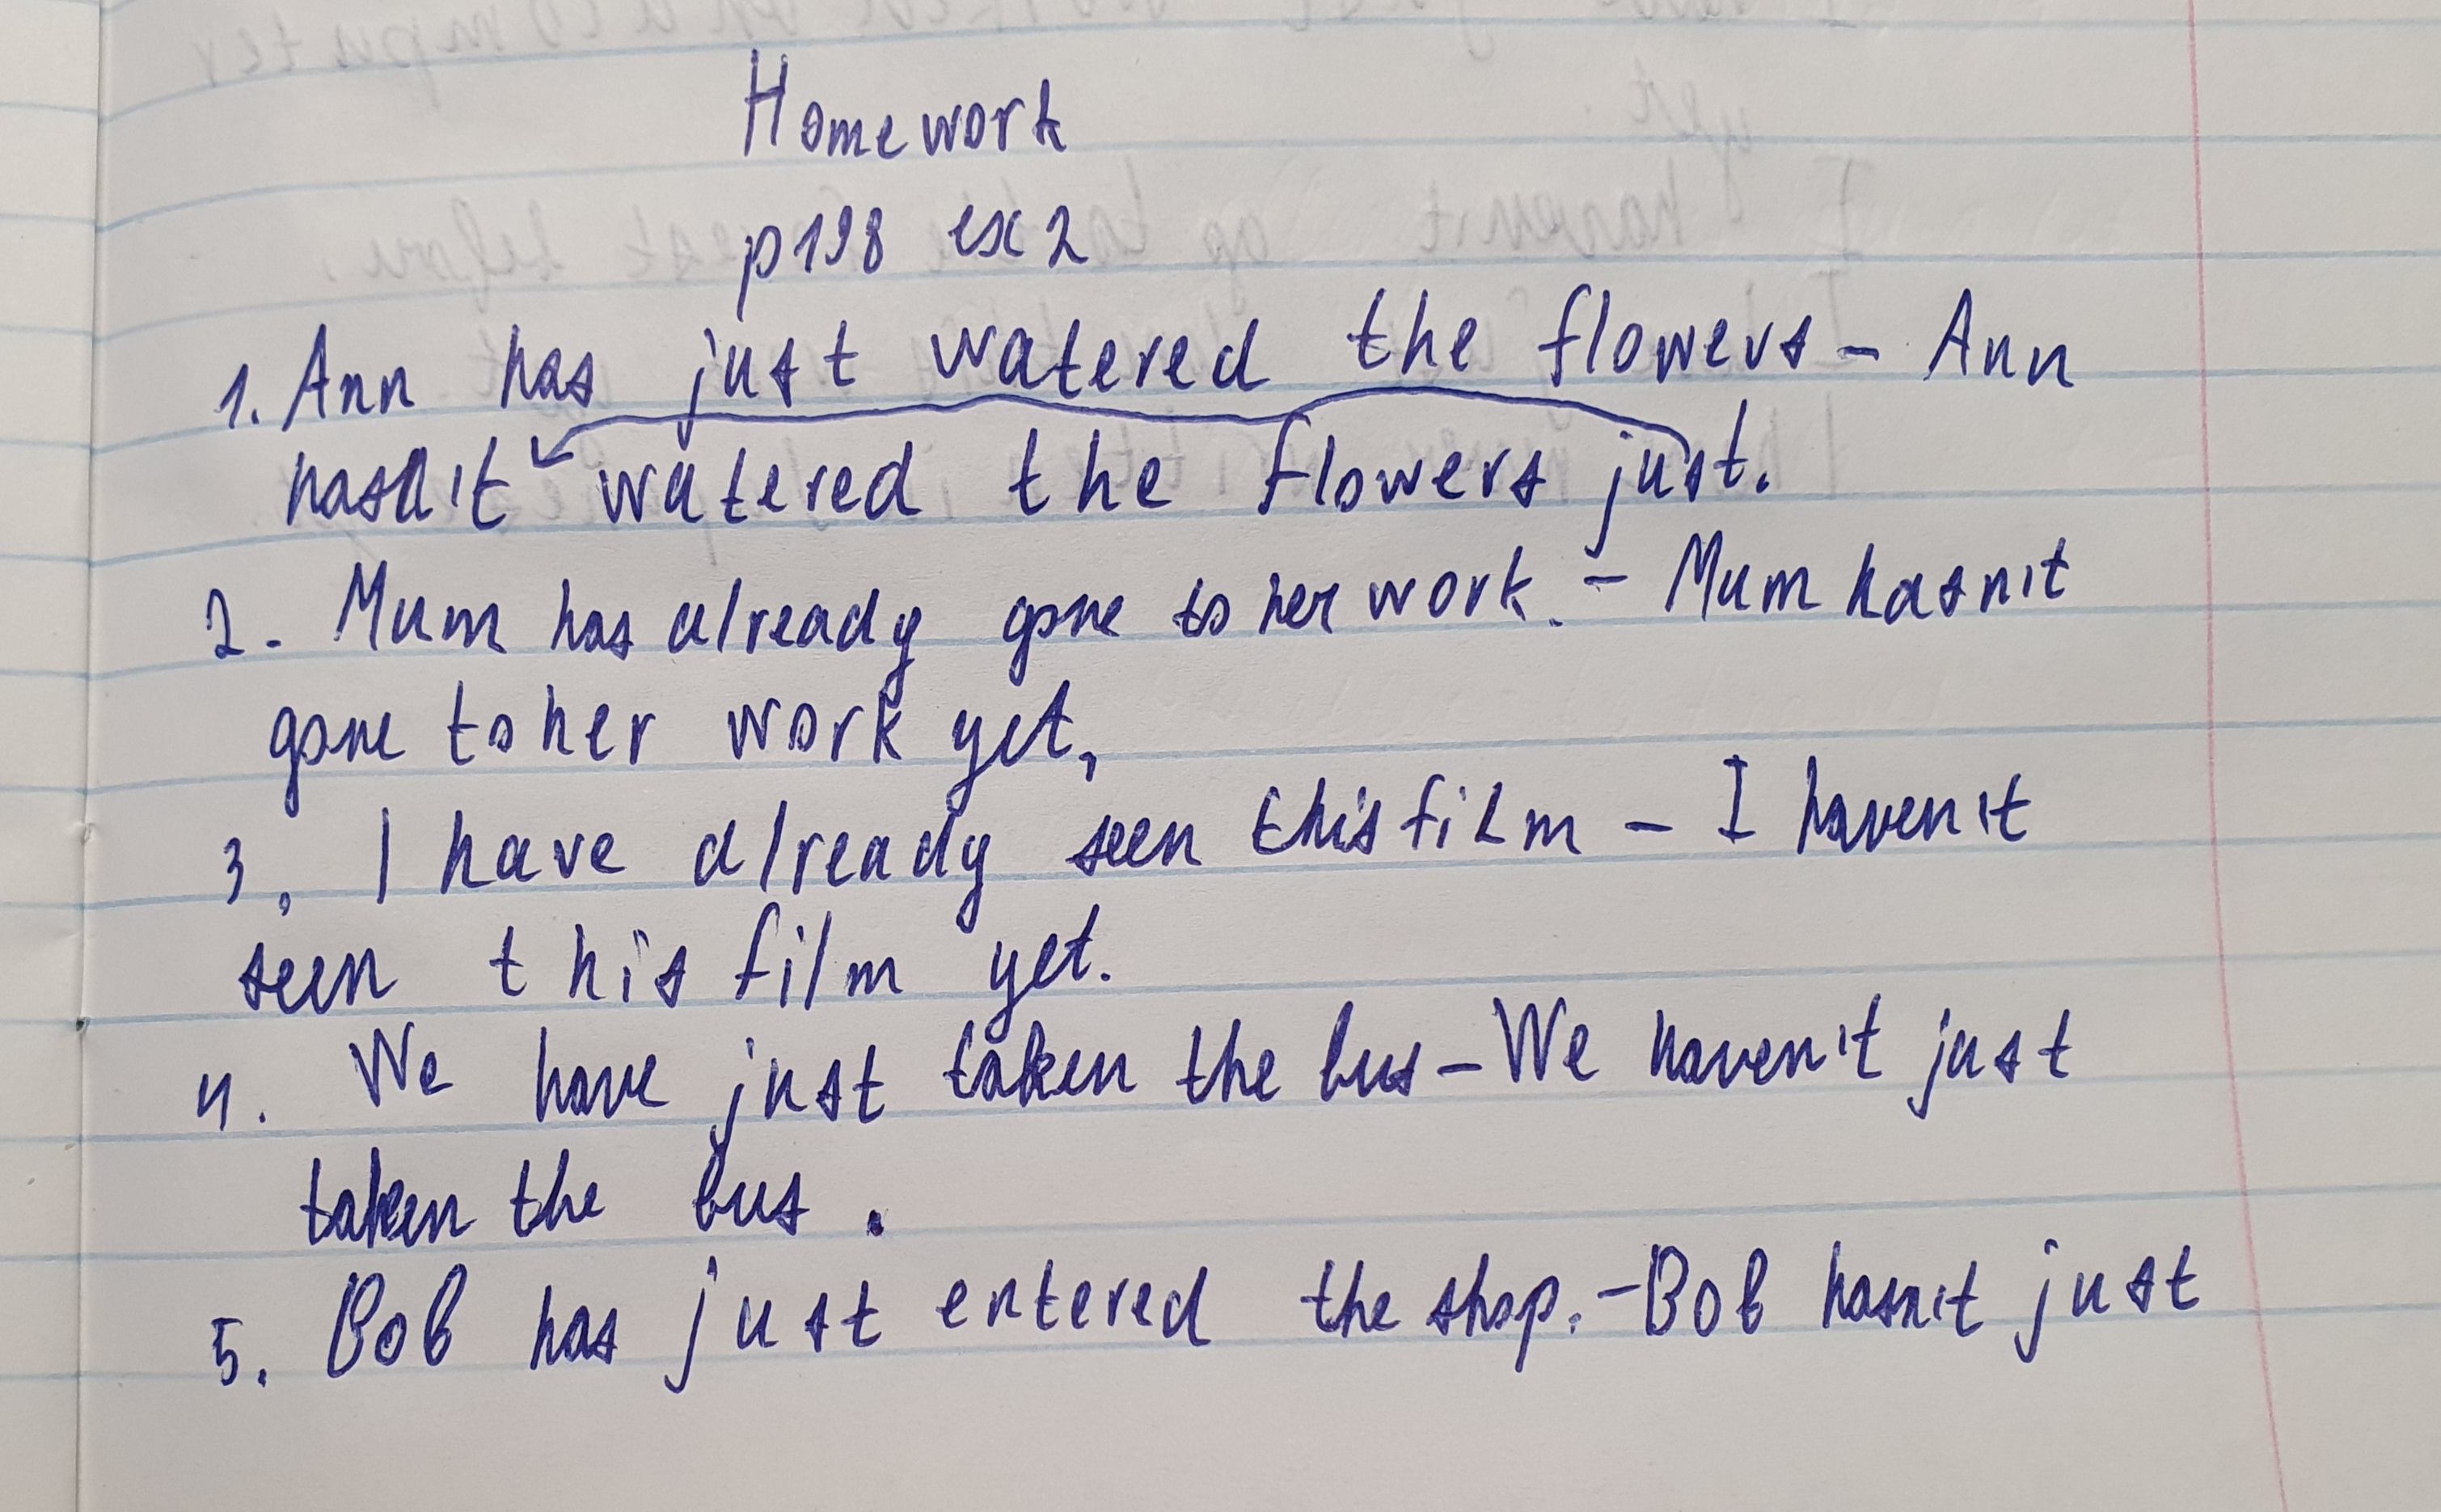 Homework
p198 ex 2
1. Ann has just watered the flowers – Ann
hasn't watered the flowers just.
2. Mum has already gone to her work. – Mum hasn't
gone to her work yet,
3, I have already seen this film – I haven't
seen this film yet.
4. We have just taken the bus – We haven't just
taken the bus.
5. Bob has just entered the shop. – Bob hasn't just